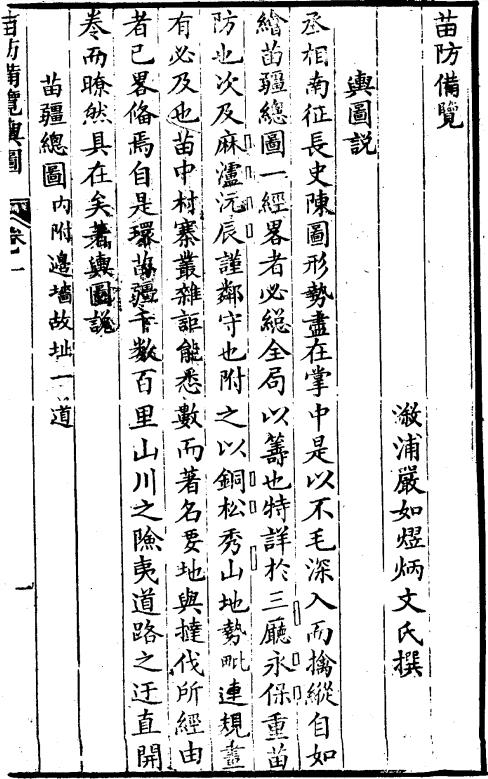 苗防備覽
漵浦嚴如熤炳文氏撰
輿圖說
丞相南征長史陳圖形勢盡在掌中是以不毛深入而擒縱自如
繪苗疆總圖一經畧者必綜全局以籌也特詳於三廳永保重苗
防也次及麻瀘沅辰謹鄰守也附之以銅松秀山地勢毗連規畫
有必及也苗中村寨叢雜詎能悉數而著名要地與撻伐所經由
者已畧俻焉自是環苗疆千數百里山川之險夷道路之迂直開
卷而瞭然具在矣著輿圖說
苗疆總圖內附邊墻故址一道
苗防備覽輿圖
卷一
一